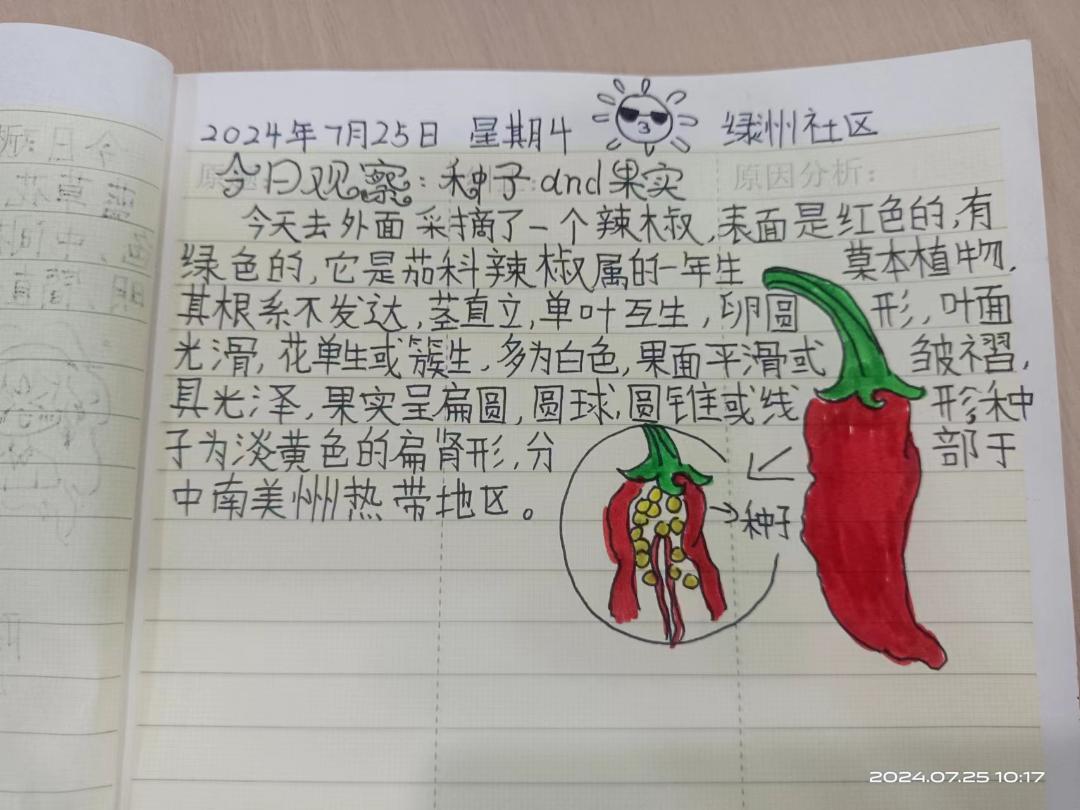 2024年7月25日 星期4 绿州社区
原因分析:
今日观察:种子and果实
今天去外面采摘了一个辣椒,表面是红色的,有
绿色的,它是茄科辣椒属的一年生草本植物,
其根系不发达,茎直立,单叶互生,卵圆形,叶面
光滑,花单生或簇生,多为白色,果面平滑或皱褶,
具光泽,果实呈扁圆,圆球,圆锥或线形,种
子为淡黄色的扁肾形,分部于
中南美州热带地区。
种子
2024.07.25 10:17